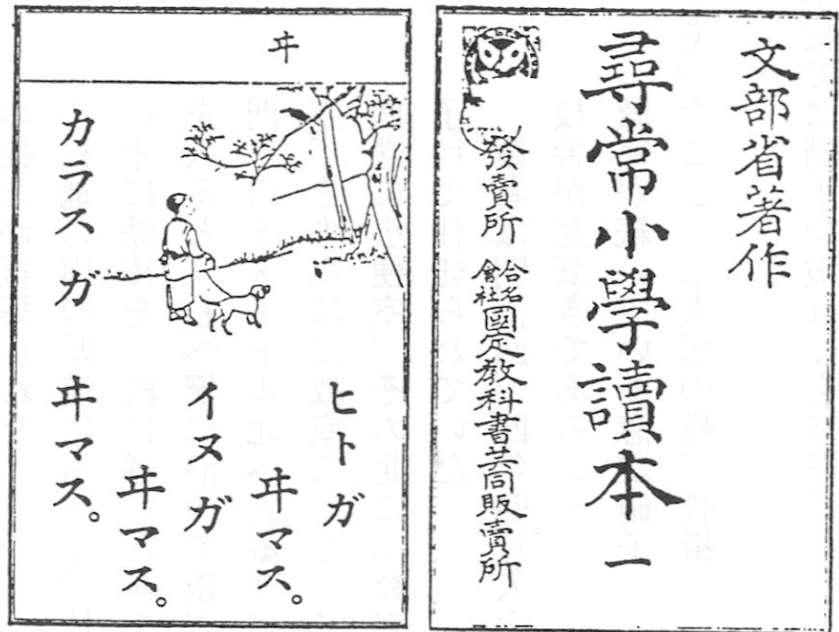 文部省著作
尋常小學讀本 一
發賣所 合名會社 國定教科書共同販賣所
ヰ
ヒトガ
ヰマス。
イヌガ
ヰマス。
カラスガ
ヰマス。